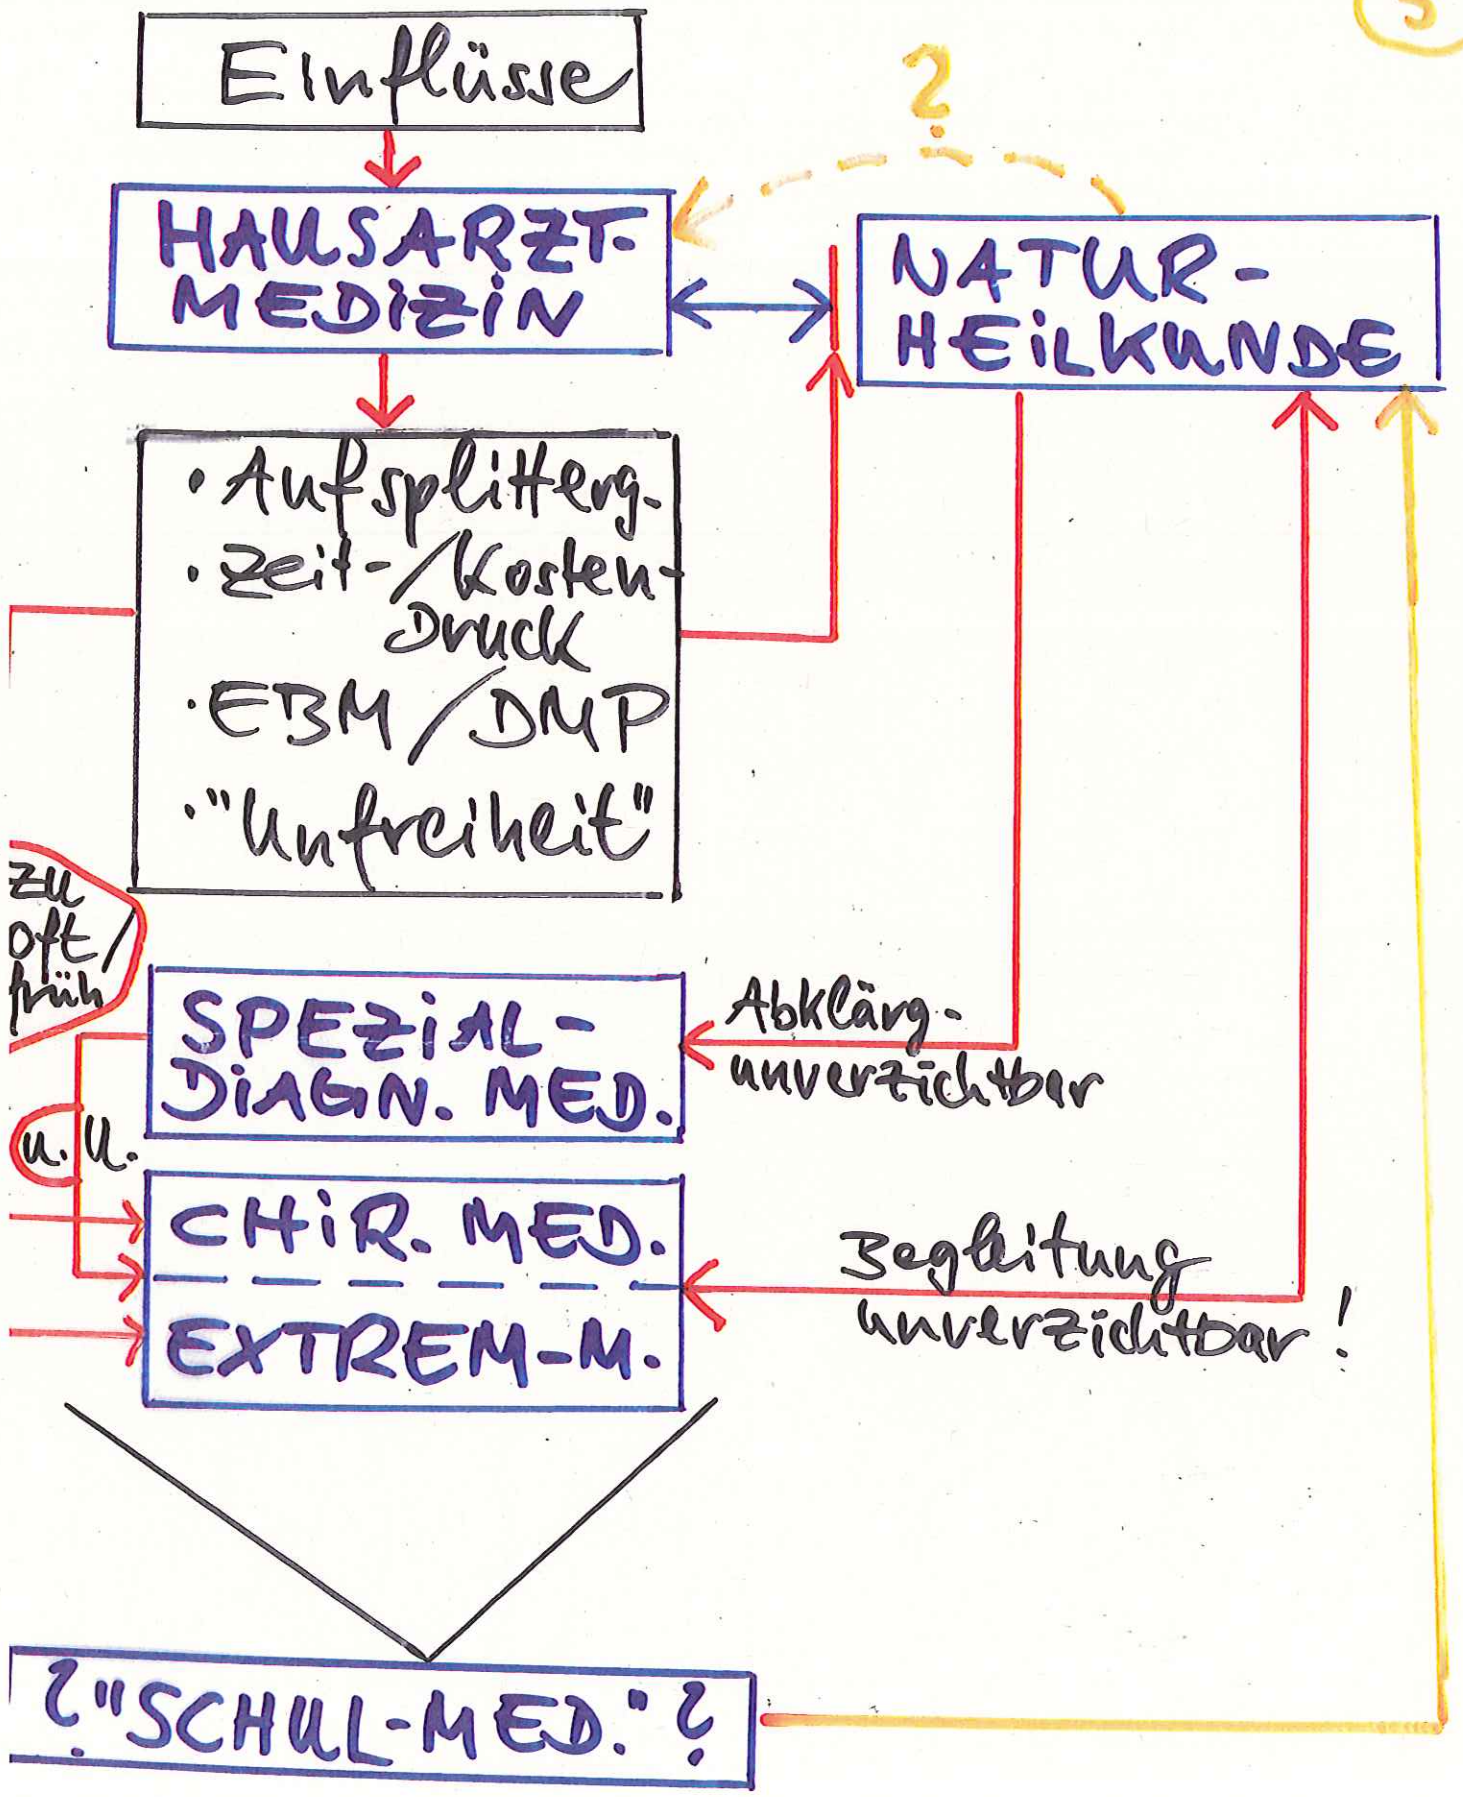 Einflüsse
?
HAUSARZT-
MEDiZiN
NATUR-
HEiLKUNDE
· Aufsplitterg.
· Zeit-/Kosten-
Druck
· EBM/DMP
· "Unfreiheit"
zu
oft/
früh
SPEZiAL-
DiAGN. MED.
Abklärg.
unverzichtbar
u. U.
CHiR. MED.
EXTREM-M.
Begleitung
unverzichtbar!
? "SCHUL-MED." ?